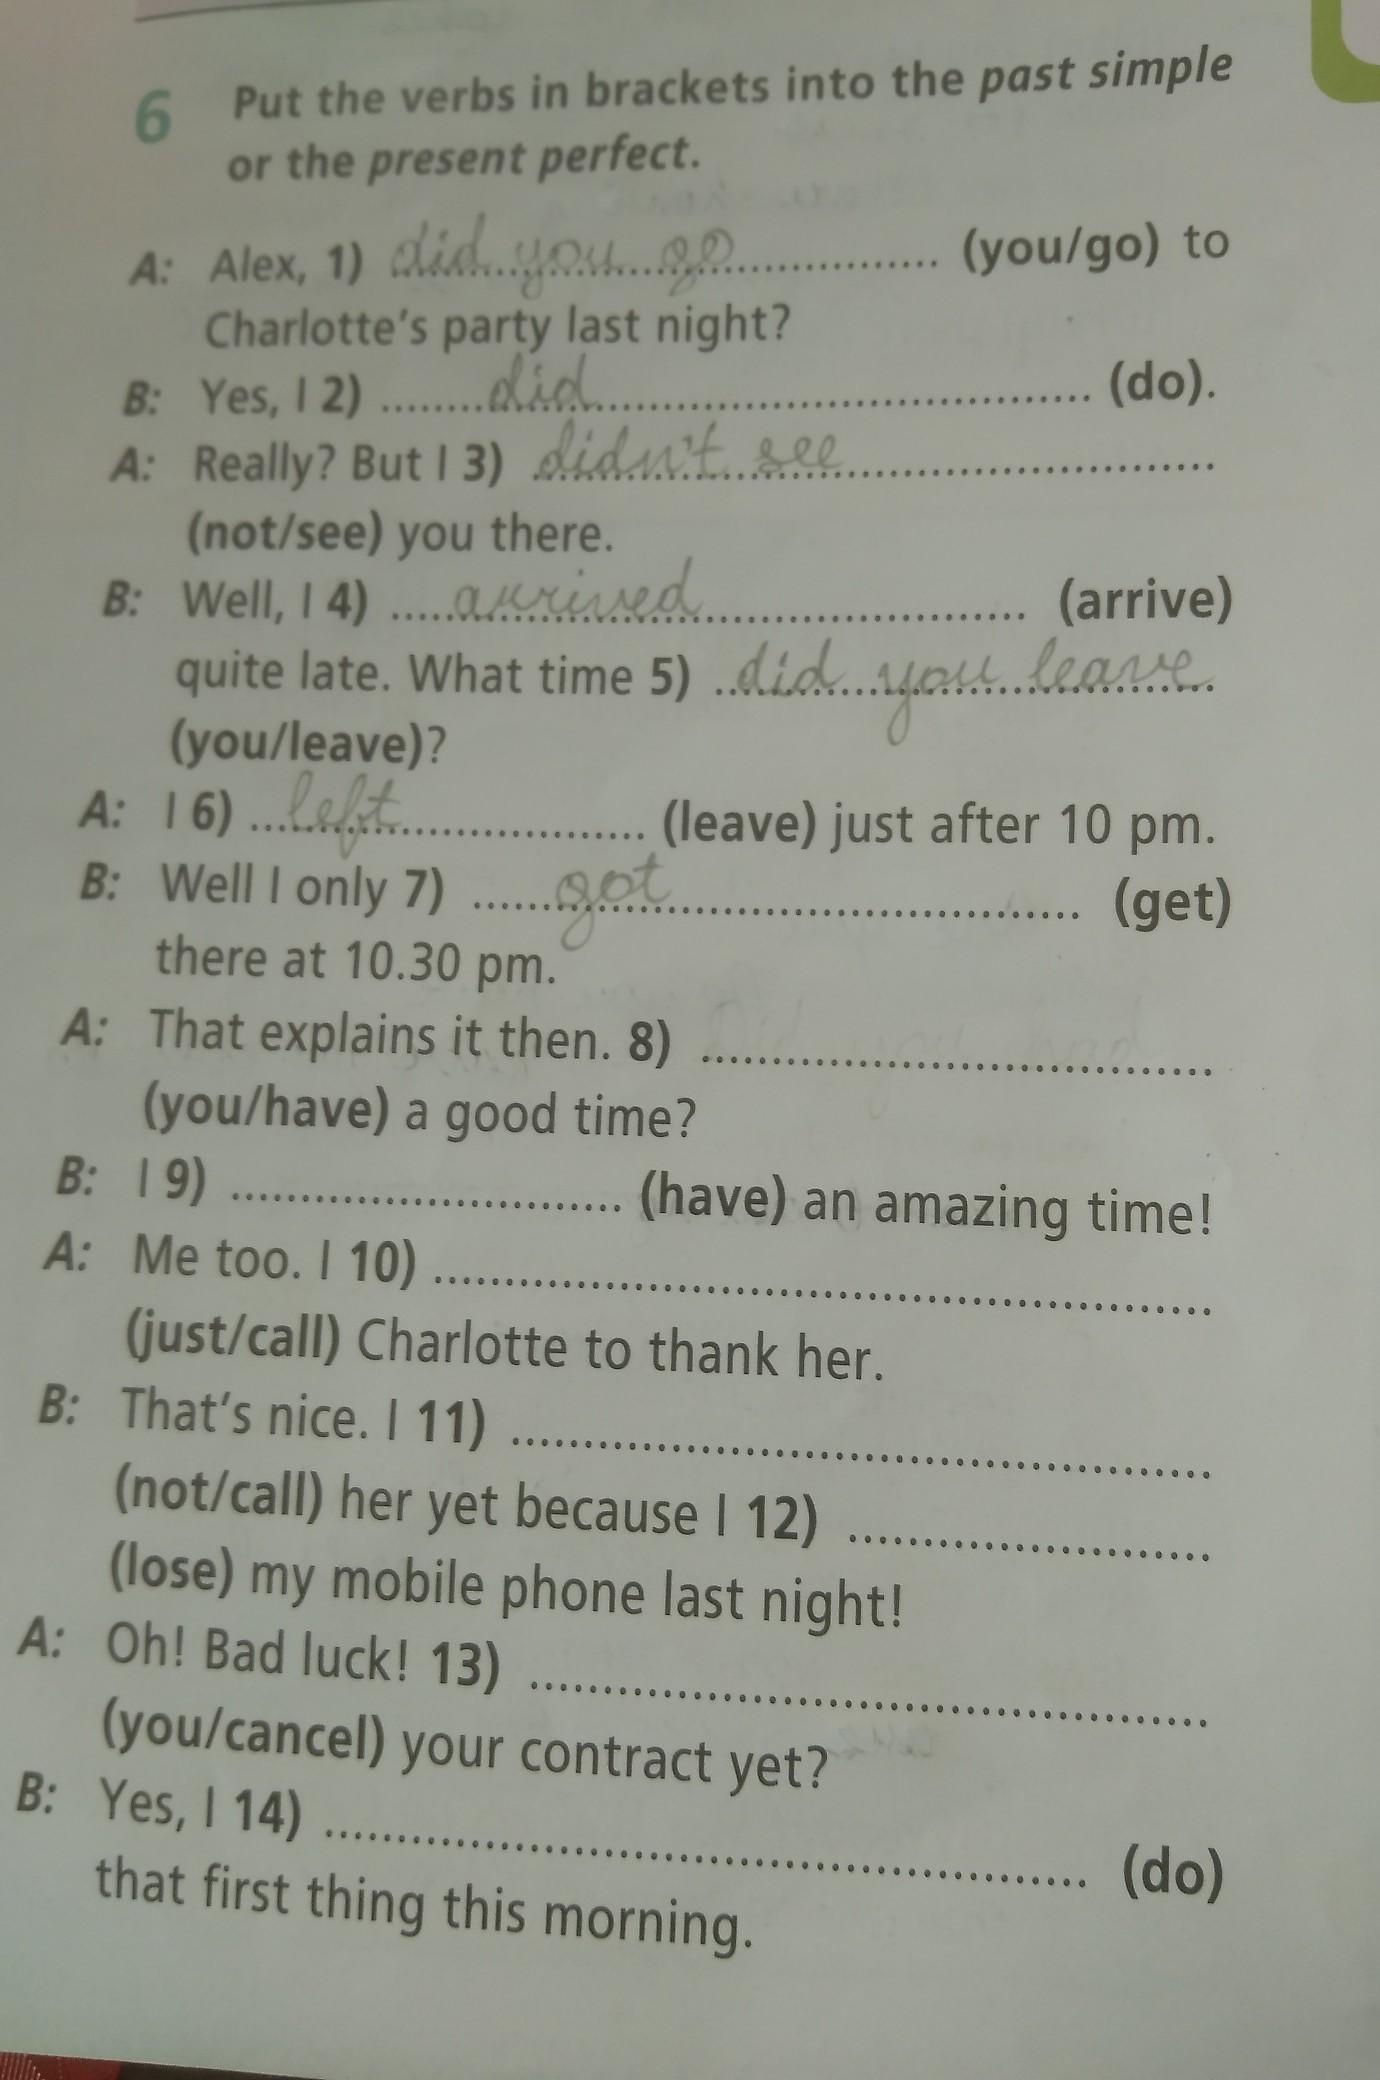 6 Put the verbs in brackets into the past simple
or the present perfect.
A: Alex, 1) did you go (you/go) to
Charlotte's party last night?
B: Yes, I 2) did (do).
A: Really? But I 3) didn't see
(not/see) you there.
B: Well, I 4) arrived (arrive)
quite late. What time 5) did you leave
(you/leave)?
A: I 6) left (leave) just after 10 pm.
B: Well I only 7) got (get)
there at 10.30 pm.
A: That explains it then. 8)
(you/have) a good time?
B: I 9) (have) an amazing time!
A: Me too. I 10)
(just/call) Charlotte to thank her.
B: That's nice. I 11)
(not/call) her yet because I 12)
(lose) my mobile phone last night!
A: Oh! Bad luck! 13)
(you/cancel) your contract yet?
B: Yes, I 14) (do)
that first thing this morning.